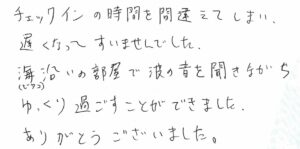 チェックインの時間を間違えてしまい、
遅くなってすいませんでした.
海沿いの部屋で波の音を聞きながら
(ビワコ)
ゆっくり過ごすことができました.
ありがとうございました。